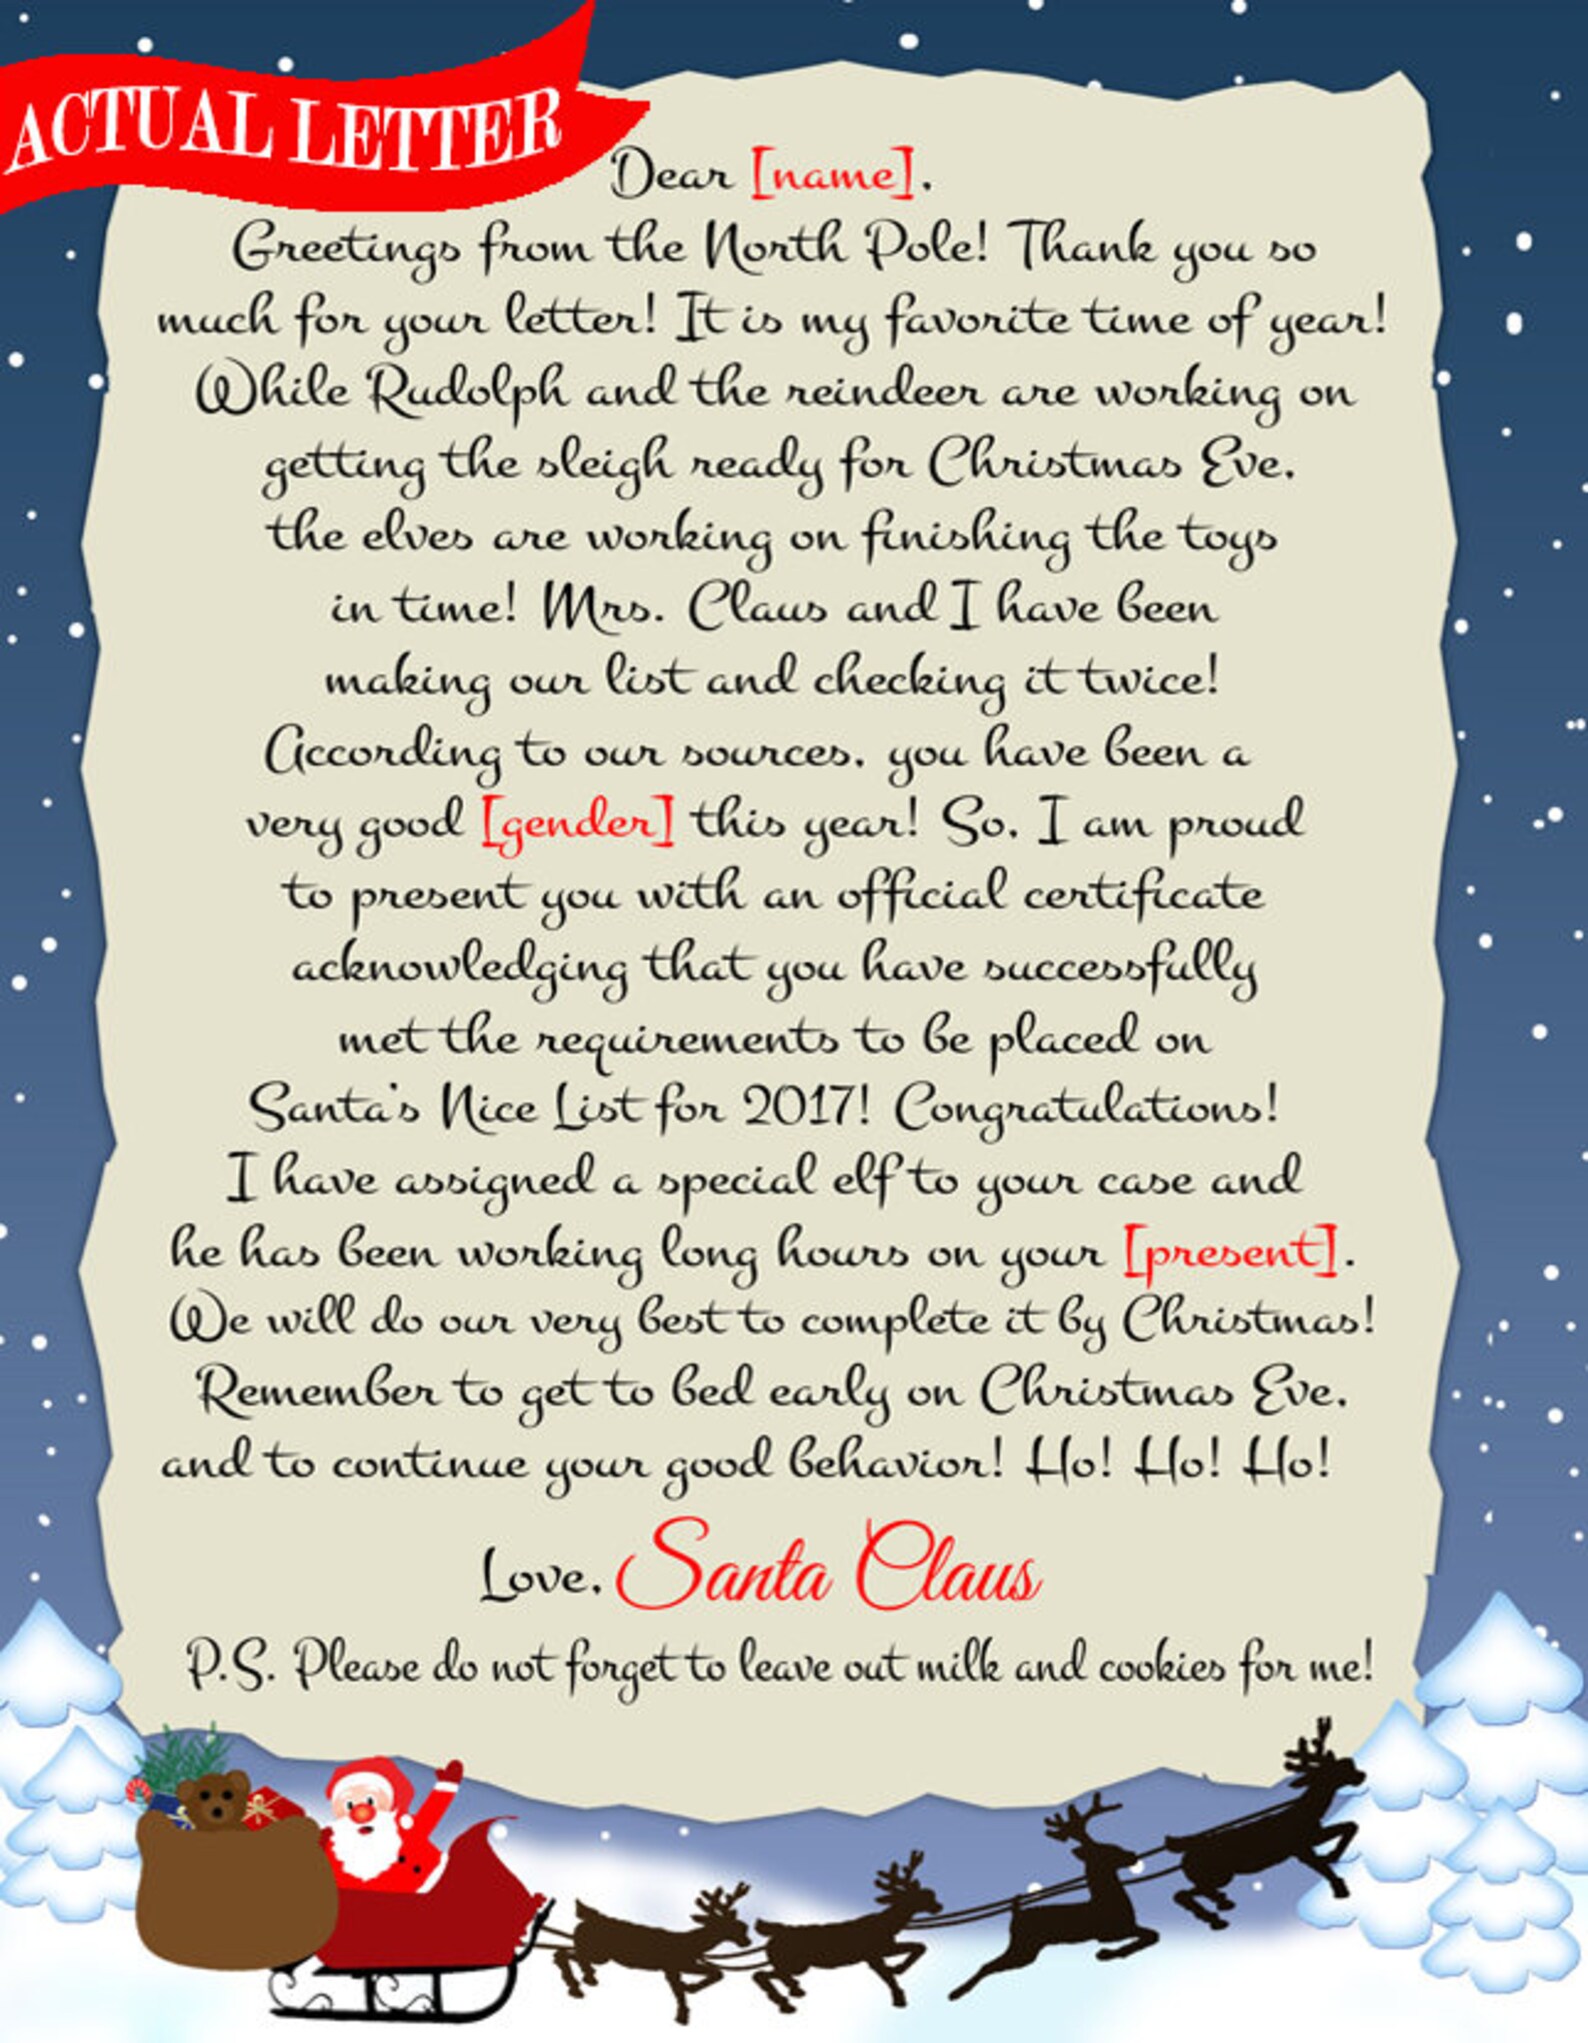 ACTUAL LETTER
Dear [name],
Greetings from the North Pole! Thank you so
much for your letter! It is my favorite time of year!
While Rudolph and the reindeer are working on
getting the sleigh ready for Christmas Eve,
the elves are working on finishing the toys
in time! Mrs. Claus and I have been
making our list and checking it twice!
According to our sources, you have been a
very good [gender] this year! So, I am proud
to present you with an official certificate
acknowledging that you have successfully
met the requirements to be placed on
Santa's Nice List for 2017! Congratulations!
I have assigned a special elf to your case and
he has been working long hours on your [present].
We will do our very best to complete it by Christmas!
Remember to get to bed early on Christmas Eve,
and to continue your good behavior! Ho! Ho! Ho!
Love, Santa Claus
P.S. Please do not forget to leave out milk and cookies for me!